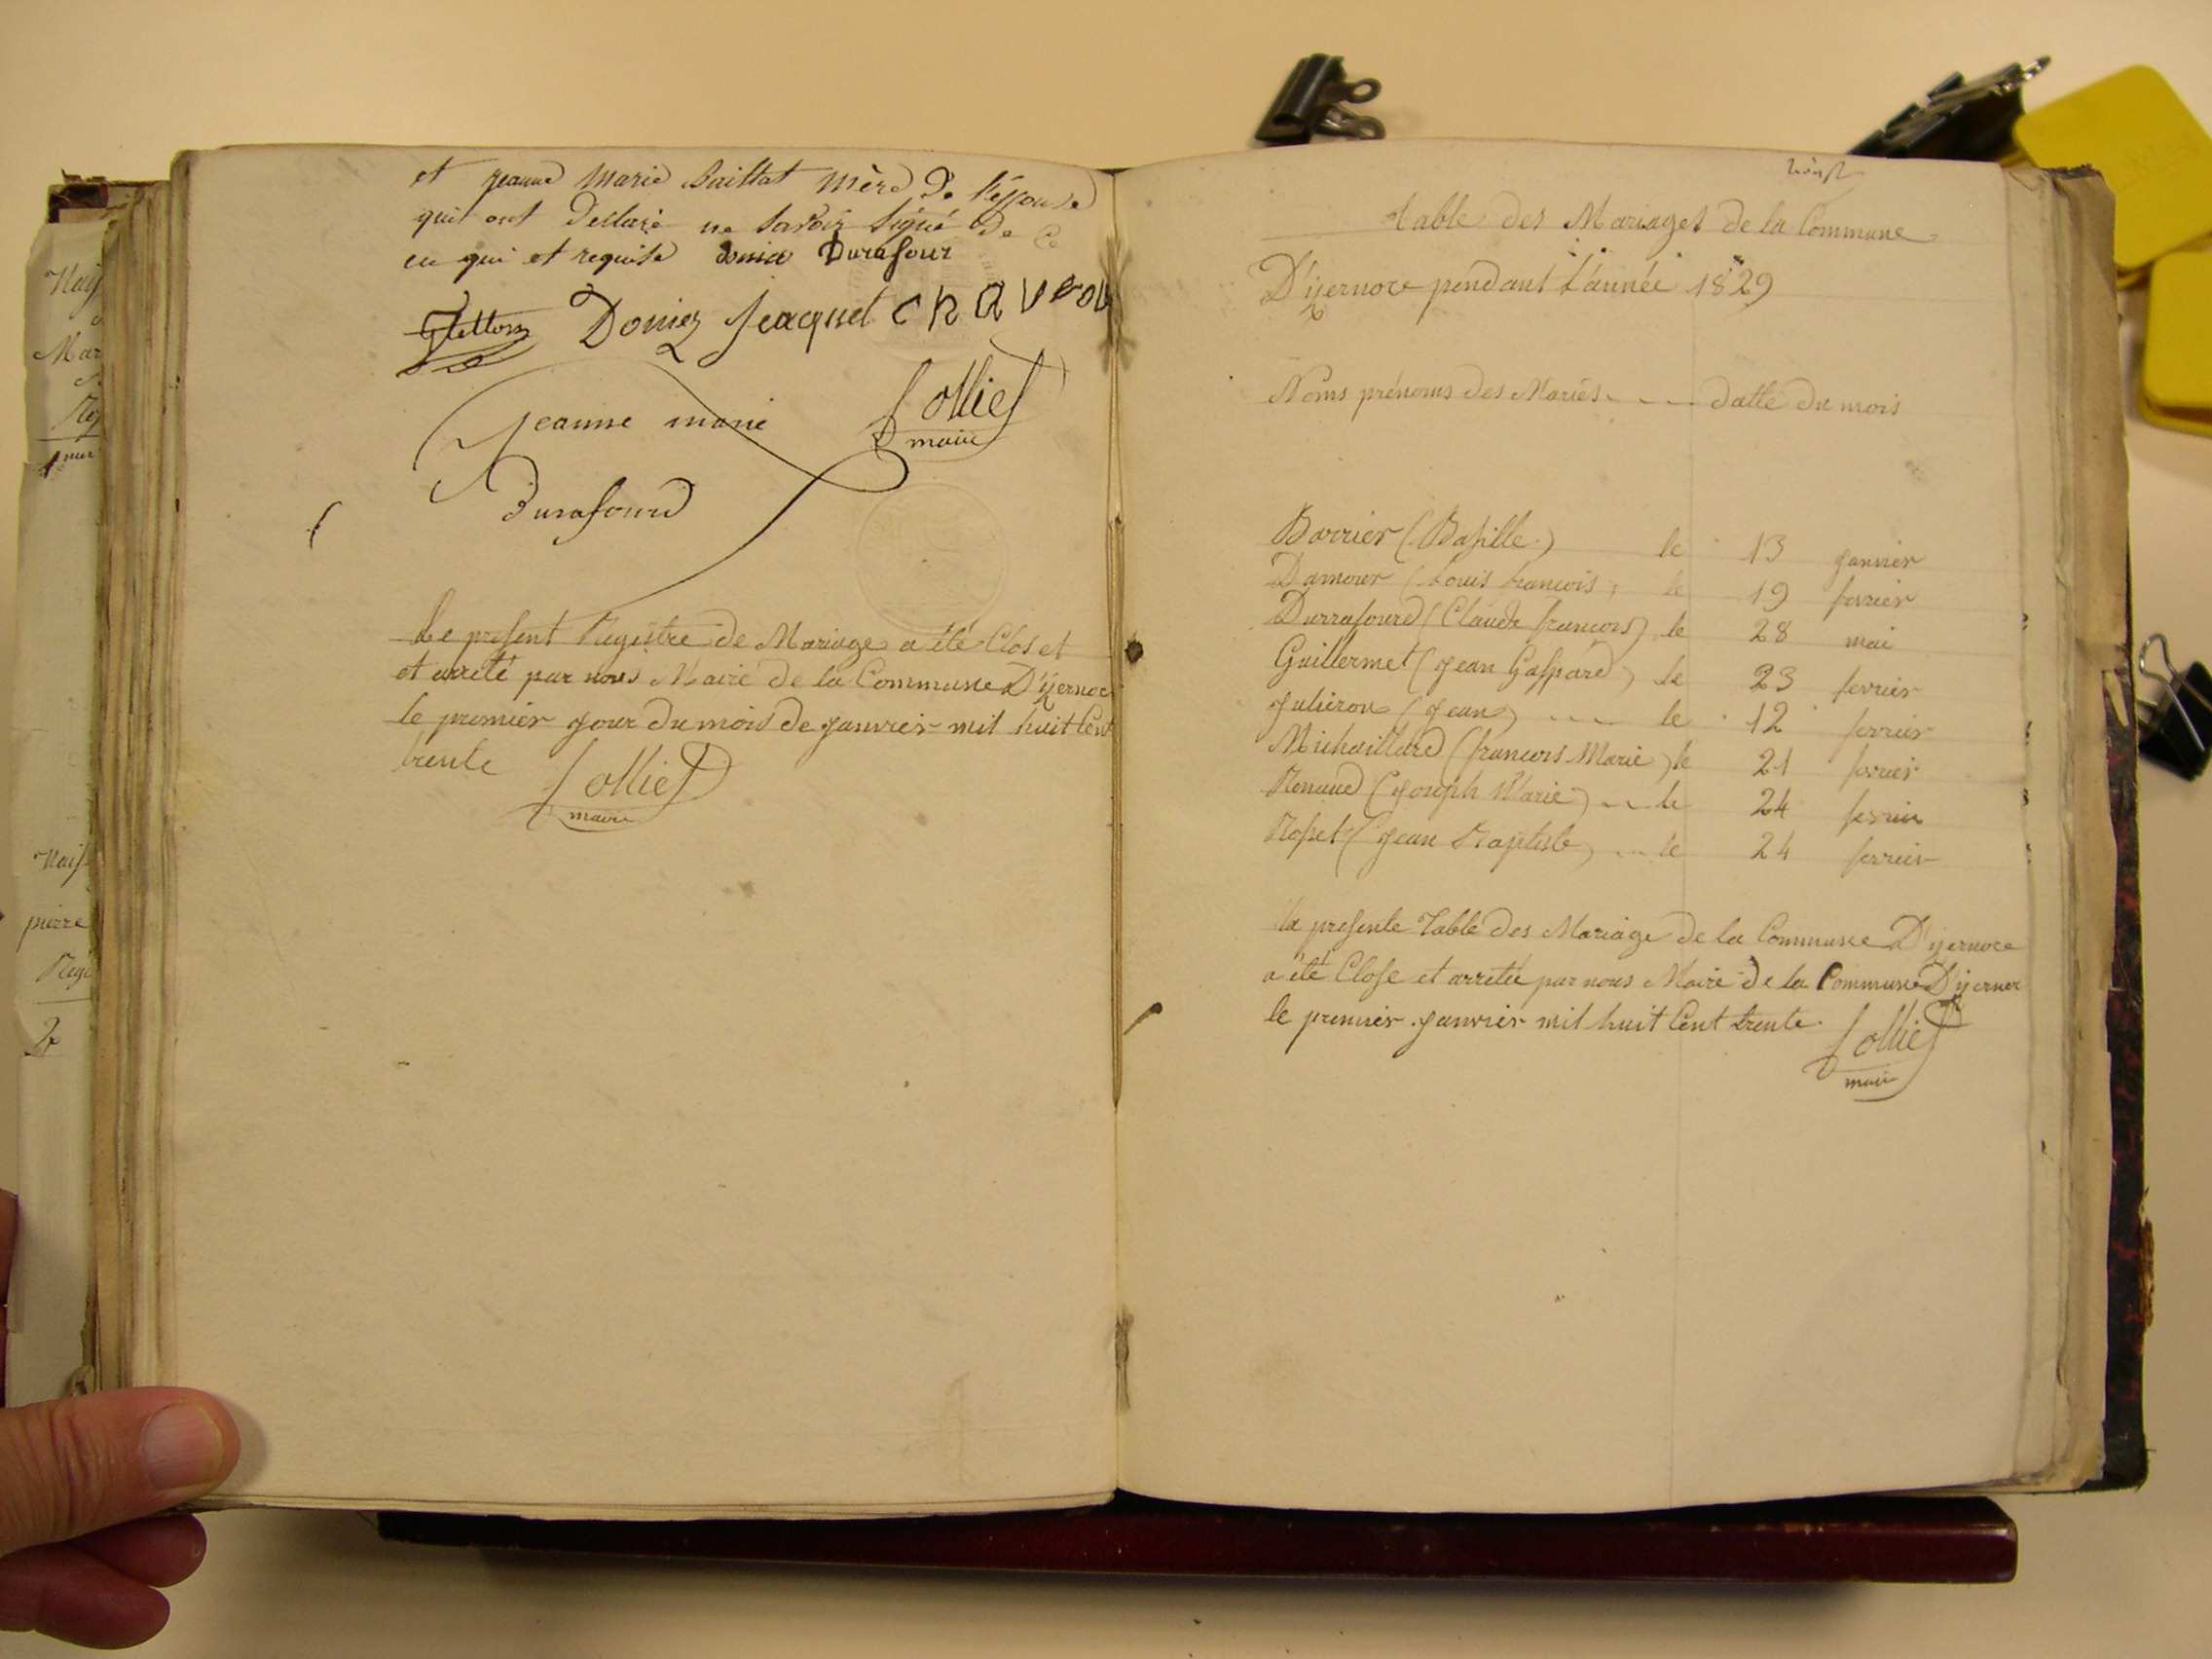 et jeanne Marie Baillat mère De l'épouse
qui ont Déclaré ne Savoir Signé de Ce
en qui et requise Donier Durafour
Donier Jeaquet CRAVEROU
jeanne marie Sollier
maire
Durafourd
Le present Registre de Mariage a été Clos et
et arreté par nous Maire de la Commune D'yzernor
le premier jour du mois de janvier mil huit Cent
trente Sollier
maire
Table des Mariages de la Commune
D'yzernore pendant L'année 1829
Noms prénoms des Mariés datte du mois
Barrier (Basille) le 13 janvier
Damour (Louis francois) le 19 fevrier
Durrafourd (Claude francois) le 28 mai
Guillermet (jean Gaspard) le 23 fevrier
Julieron (jean) le 12 fevrier
Michaillard (francois Marie) le 21 fevrier
Renaud (joseph Marie) le 24 fevrier
Rosset (jean Baptiste) le 24 fevrier
la presente Table des Mariage de la Commune D'yzernore
a été Close et arretée par nous Maire de la Commune D'yzernor
le premier janvier mil huit Cent trente.
Sollier
maire